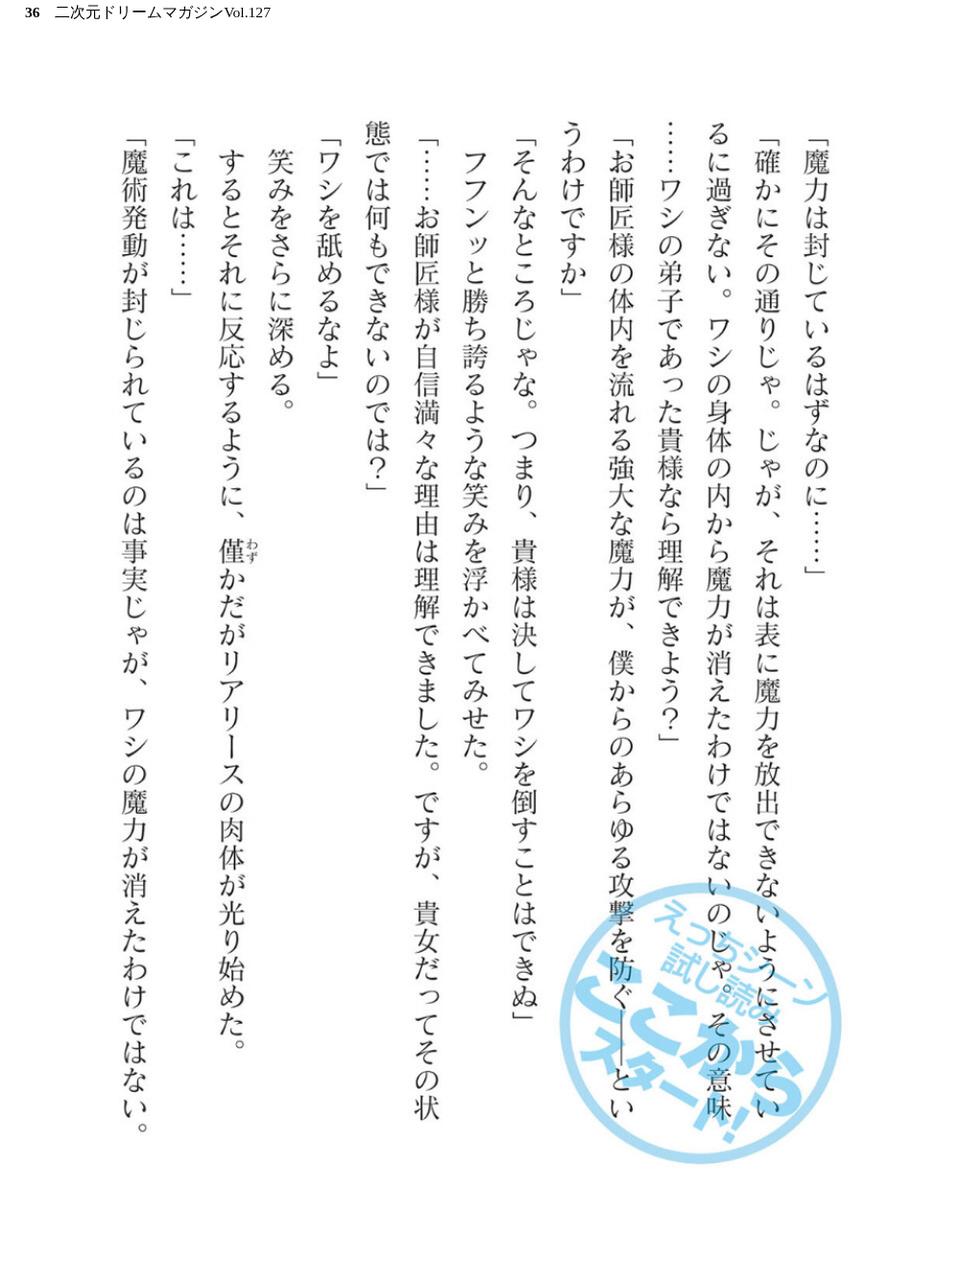 36 二次元ドリームマガジンVol.127
「魔力は封じているはずなのに……」
「確かにその通りじゃ。じゃが、それは表に魔力を放出できないようにさせてい
るに過ぎない。ワシの身体の内から魔力が消えたわけではないのじゃ。その意味
……ワシの弟子であった貴様なら理解できよう？」
「お師匠様の体内を流れる強大な魔力が、僕からのあらゆる攻撃を防ぐ――とい
うわけですか」
「そんなところじゃな。つまり、貴様は決してワシを倒すことはできぬ」
フフンッと勝ち誇るような笑みを浮かべてみせた。
「……お師匠様が自信満々な理由は理解できました。ですが、貴女だってその状
態では何もできないのでは？」
「ワシを舐めるなよ」
笑みをさらに深める。
するとそれに反応するように、僅かだがリアリースの肉体が光り始めた。
わず
「これは……」
「魔術発動が封じられているのは事実じゃが、ワシの魔力が消えたわけではない。
えっちシーン
試し読み
ここから
スタート！